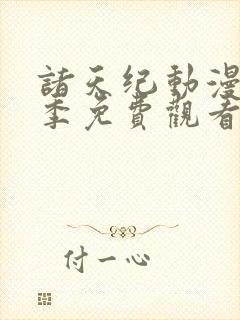 諸天纪動漫
季免費觀看
付一心